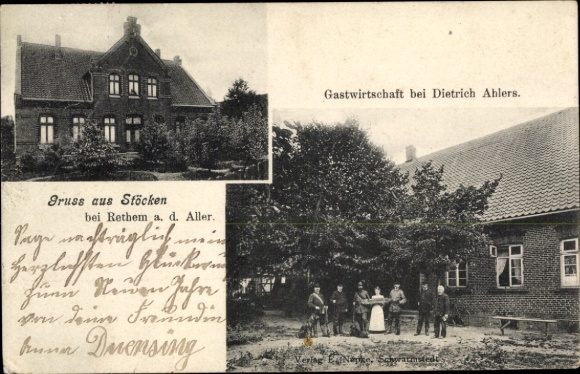 Gastwirtschaft bei Dietrich Ahlers.
Gruss aus Stöcken
bei Rethem a. d. Aller.
Sage nachträglich mein
herzlichsten Glück
zum Neuen Jahr
von deine Freundin
Anna Duensing
Verlag E. Nopke, Schwarmstedt